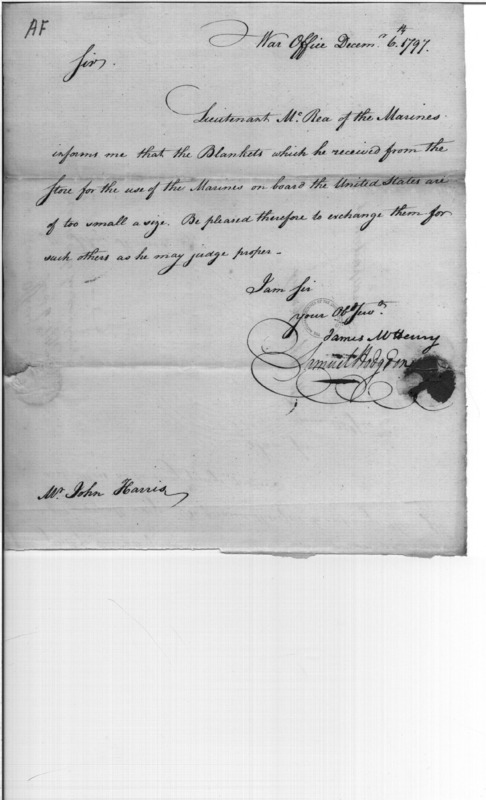 AF
War Office Decemr. 6.th 1797.
Sir,
Lieutenant McRea of the Marines
informs me that the Blankets which he received from the
Store for the use of the Marines on board the United States are
of too small a size. Be pleased therefore to exchange them for
such others as he may judge proper -
I am Sir
your Obd Servt
James McHenry
Samuel Hodgdon
Mr. John Harris